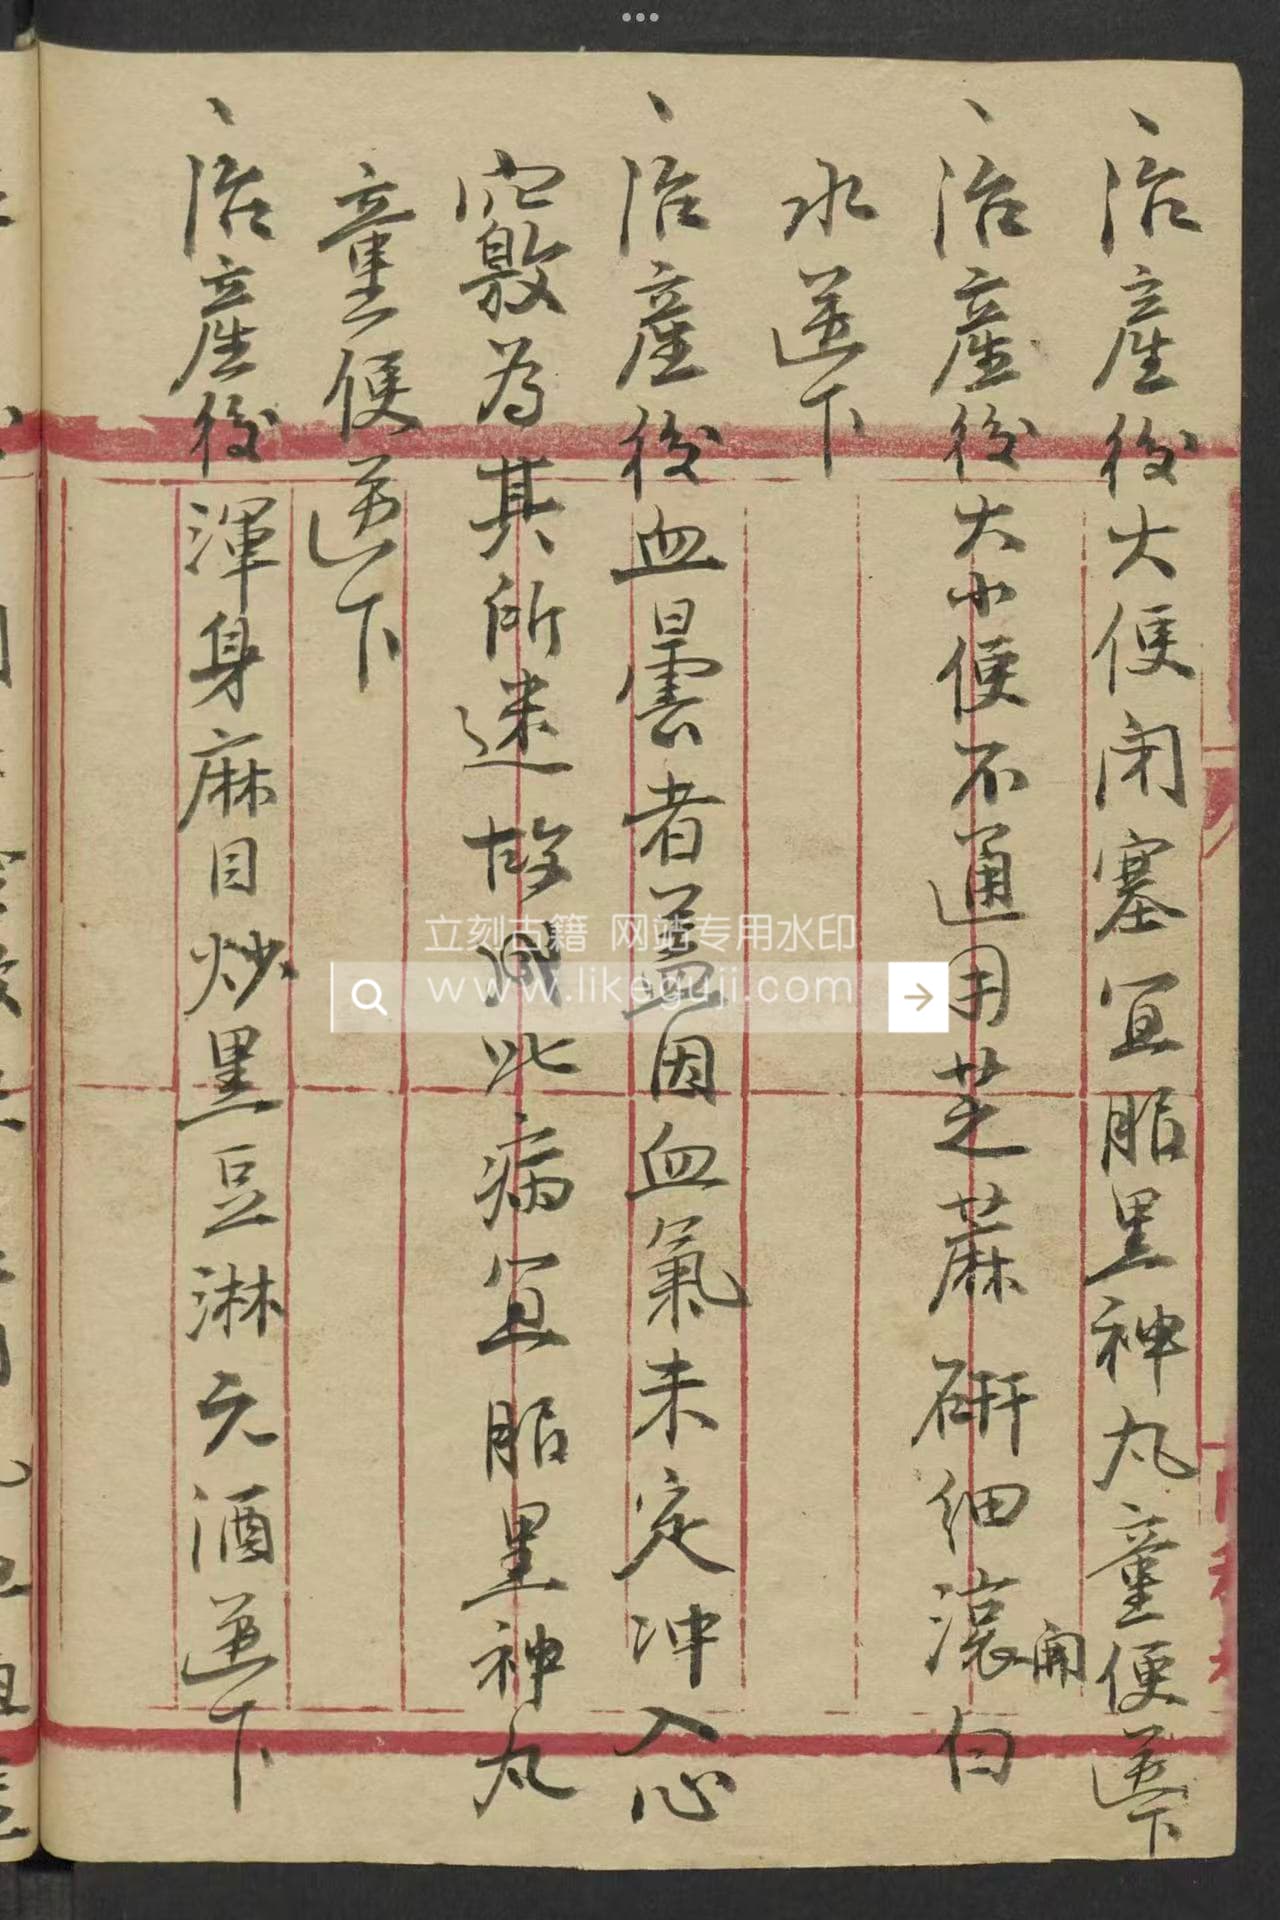 、治産後大便闭塞宜服黑神丸童便送下
、治産後大小便不通用芝蔴研细滚開白
水送下
、治産後血曇者盖因血氣未定冲入心
竅为其所迷故此病宜服黑神丸
童便送下
、治産後渾身麻目炒黑豆淋元酒送下
立刻古籍 网站专用水印
www.likeguji.com